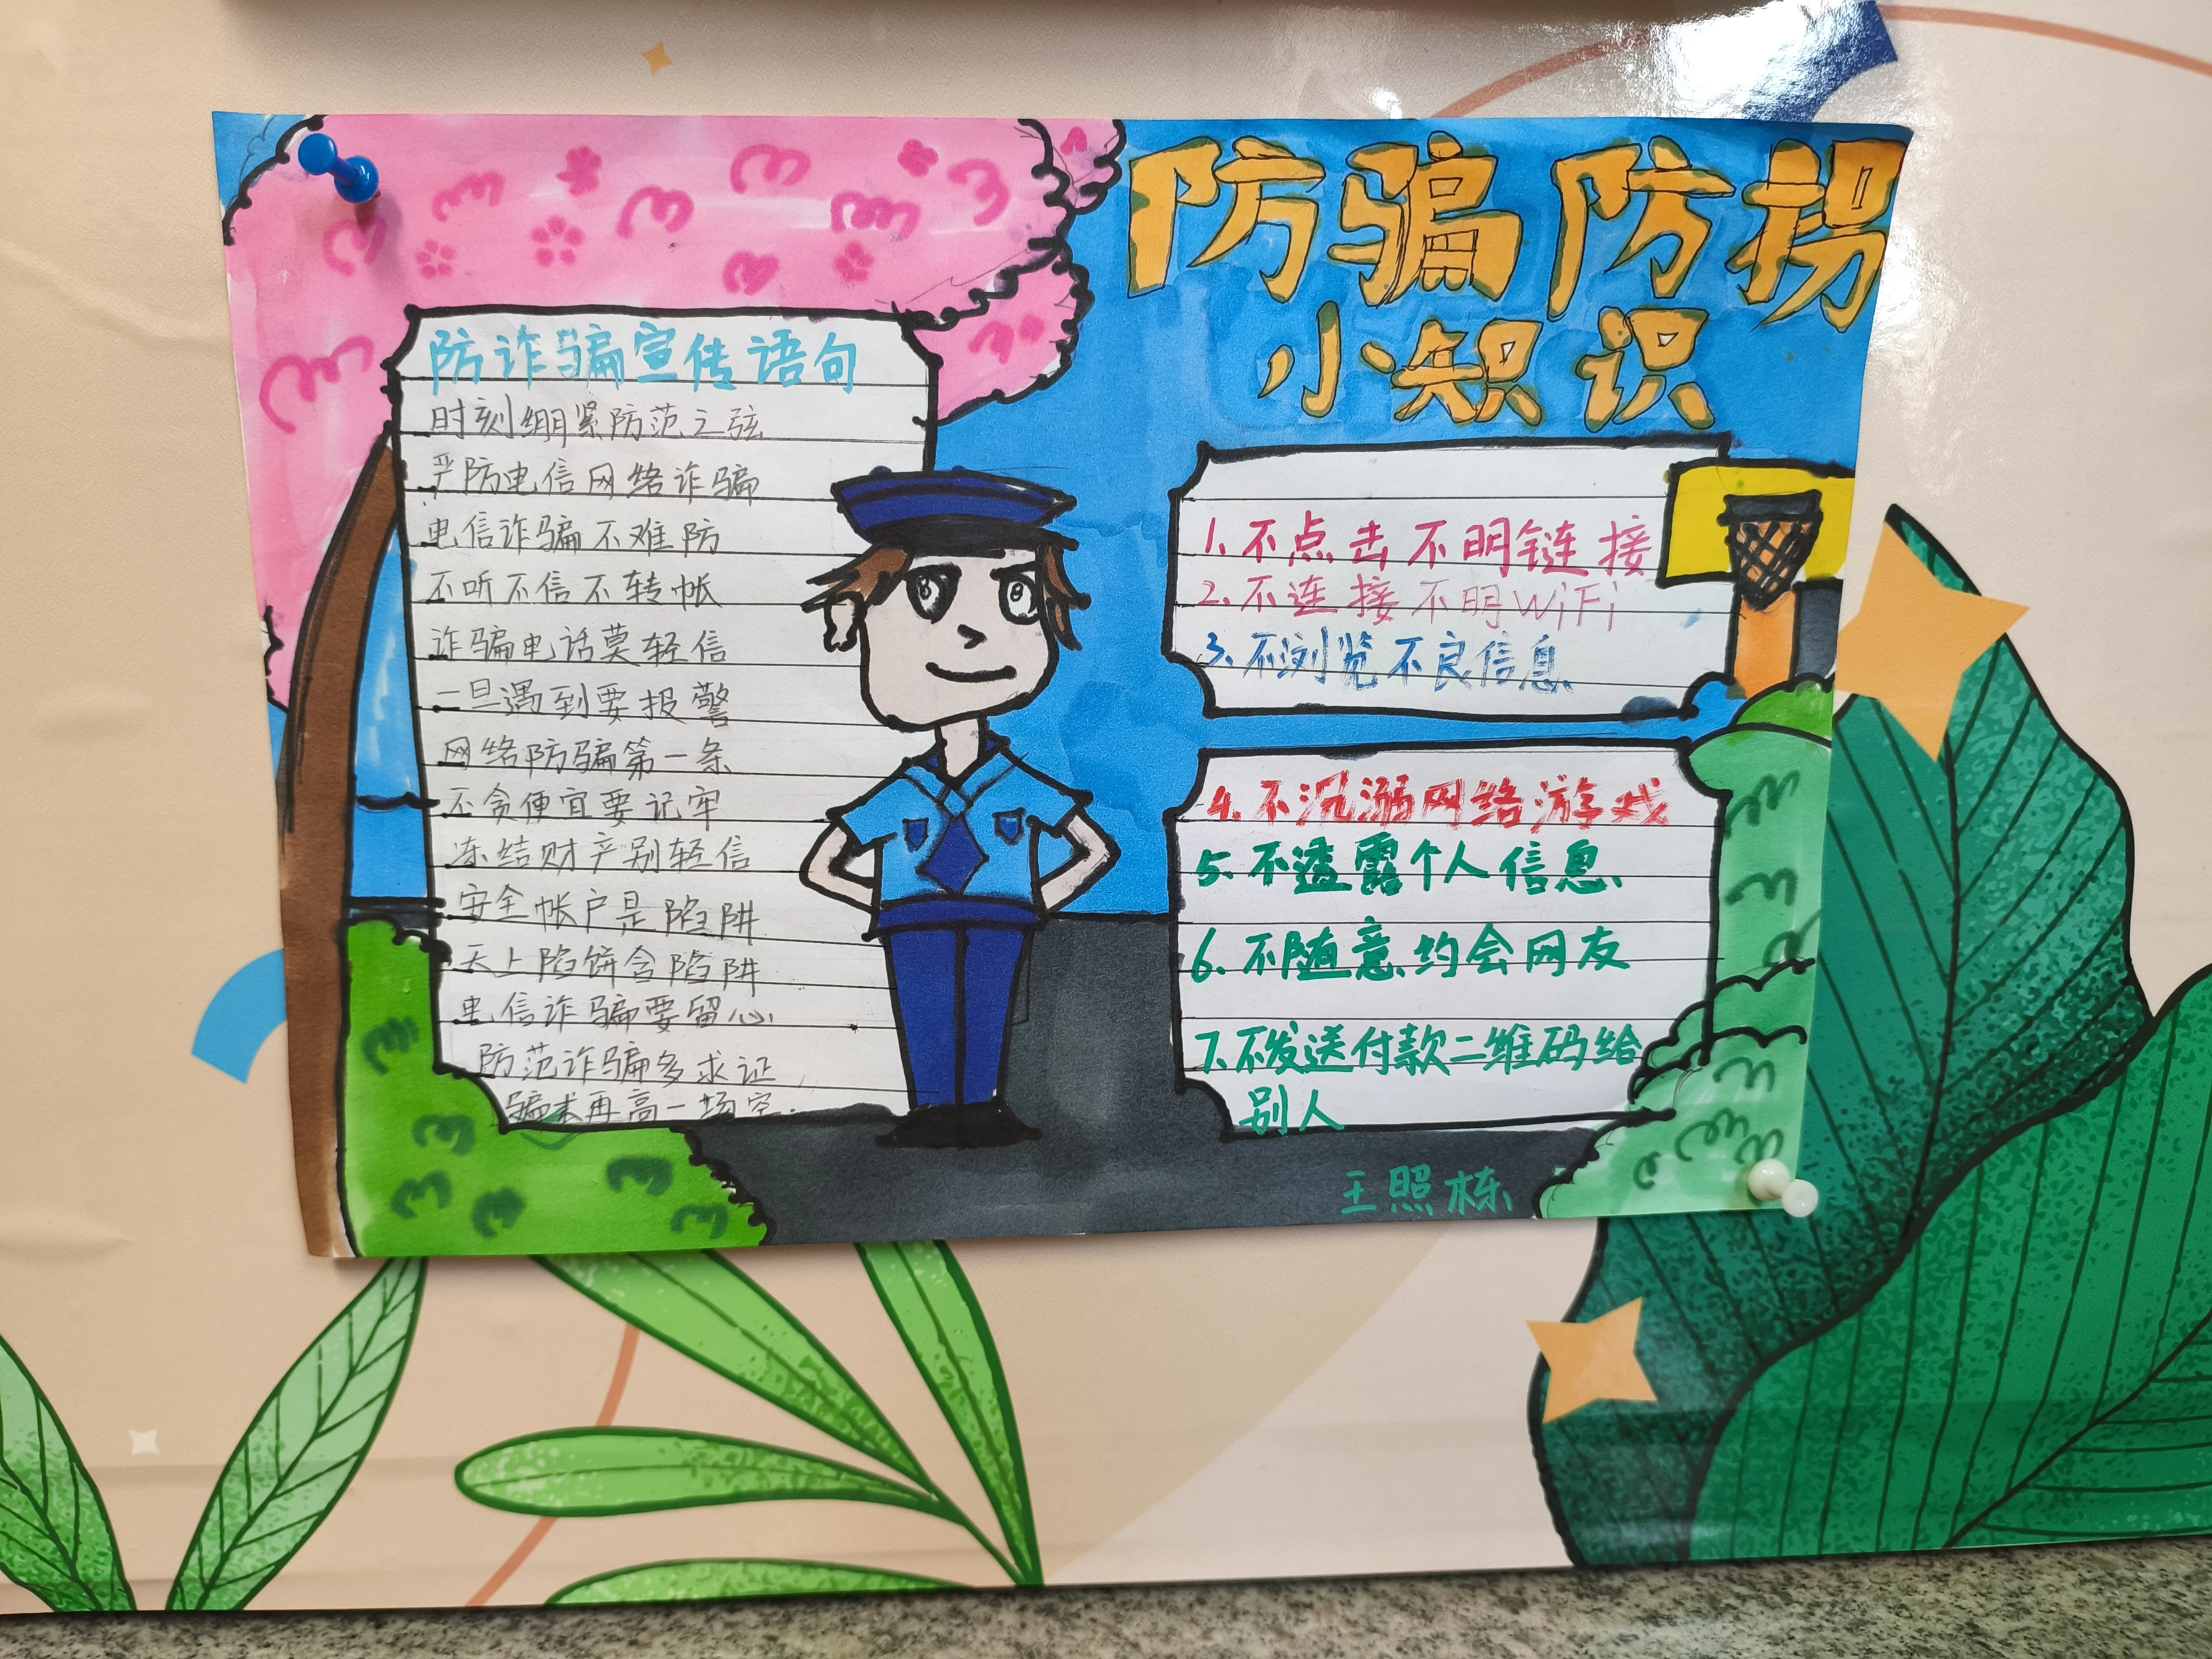 防骗防拐
小知识
防诈骗宣传语句
时刻绷紧防范之弦
严防电信网络诈骗
电信诈骗不难防
不听不信不转帐
诈骗电话莫轻信
一旦遇到要报警
网络防骗第一条
不贪便宜要记牢
冻结财产别轻信
安全帐户是陷阱
天上陷饼含陷阱
电信诈骗要留心
防范诈骗多求证
骗术再高一场空.
1.不点击不明链接
2.不连接不明WiFi
3.不浏览不良信息
4.不沉溺网络游戏
5.不透露个人信息
6.不随意约会网友
7.不发送付款二维码给
别人
王照栋